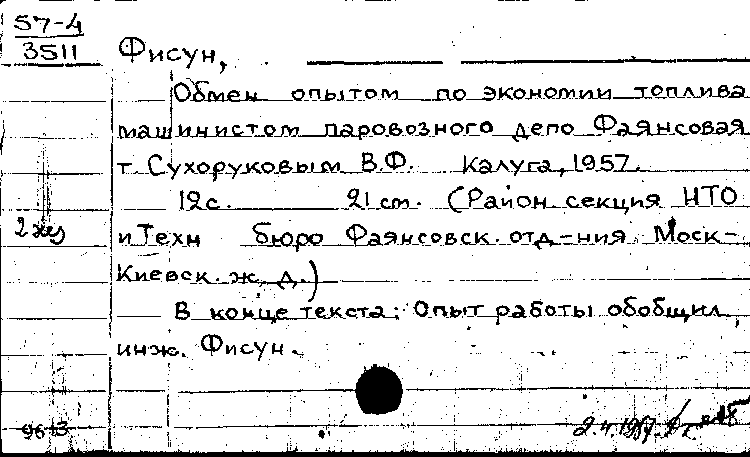 57-4
3511
Фисун,
Обмен опытом по экономии топлива
машинистом паровозного депо Фаянсовая
т. Сухоруковым В.Ф. Калуга, 1957.
12с. 21 cm. (Район. секция НТО
2 экз
и Техн бюро Фаянсовск. отд-ния Моск-
Киевск. ж. д.)
В конце текста: Опыт работы обобщил
инж. Фисун.